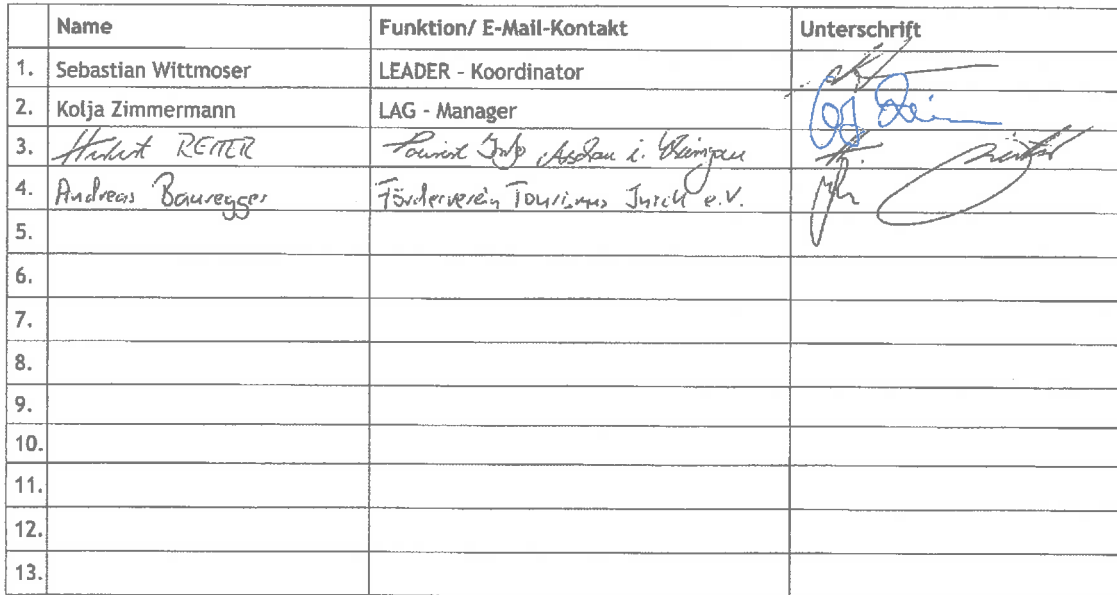 Name Funktion/ E-Mail-Kontakt Unterschrift
1. Sebastian Wittmoser LEADER - Koordinator
2. Kolja Zimmermann LAG - Manager
3. Herbert REITER Tourist Info Aschau i. Chiemgau
4. Andreas Bauregger Förderverein Tourismus e.V.
5.
6.
7.
8.
9.
10.
11.
12.
13.